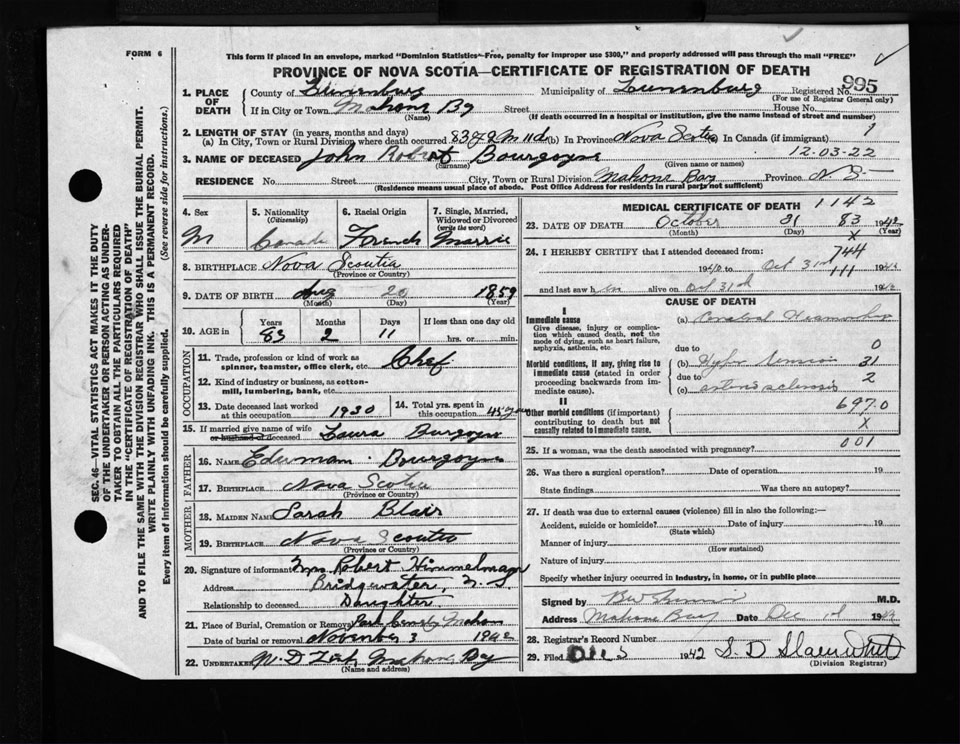 FORM 6
This form if placed in an envelope, marked "Dominion Statistics-Free, penalty for improper use $300," and properly addressed will pass through the mail "FREE"
PROVINCE OF NOVA SCOTIA—CERTIFICATE OF REGISTRATION OF DEATH
995
1. PLACE OF DEATH
County of Lunenburg Municipality of Lunenburg Registered No.
(For use of Registrar General only)
If in City or Town Mahone By Street House No.
(Name) (If death occurred in a hospital or institution, give the name instead of street and number)
2. LENGTH OF STAY (in years, months and days)
(a) In City, Town or Rural Division where death occurred 83y 2m 11d (b) In Province Nova Scotia (c) In Canada (if immigrant)
12-03-22
3. NAME OF DECEASED John Robert Bourgoyne
(Surname) (Given name or names)
RESIDENCE No. Street City, Town or Rural Division Mahone Bay Province N. S.
(Residence means usual place of abode. Post Office Address for residents in rural parts not sufficient)
SEC. 46—VITAL STATISTICS ACT MAKES IT THE DUTY
OF THE UNDERTAKER OR PERSON ACTING AS UNDER-
TAKER TO OBTAIN ALL THE PARTICULARS REQUIRED
IN THE "CERTIFICATE OF REGISTRATION OF DEATH"
AND TO FILE THE SAME WITH THE DIVISION REGISTRAR WHO SHALL ISSUE THE BURIAL PERMIT.
WRITE PLAINLY WITH UNFADING INK. THIS IS A PERMANENT RECORD.
Every item of information should be carefully supplied. (See reverse side for instructions.)
4. Sex
M
5. Nationality
(Citizenship)
Canada
6. Racial Origin
French
7. Single, Married,
Widowed or Divorced
(write the word)
Marrie
8. BIRTHPLACE Nova Scoutia
(Province or Country)
9. DATE OF BIRTH Aug 20 1859
(Month) (Day) (Year)
10. AGE in
Years Months Days If less than one day
83 2 11 hrs. or min.
OCCUPATION
11. Trade, profession or kind of work as
spinner, teamster, office clerk, etc. Chef
12. Kind of industry or business, as cotton-
mill, lumbering, bank, etc.
13. Date deceased last worked
at this occupation 1930
14. Total yrs. spent in
this occupation 45 years
15. If married give name of wife
or husband of deceased Laura Burgoyne
FATHER
16. NAME Bourgoyne
17. BIRTHPLACE Nova Scotia
(Province or Country)
MOTHER
18. MAIDEN NAME Sarah Blair
19. BIRTHPLACE Nova Scoutia
(Province or Country)
20. Signature of informant Mrs Robert Himmelman
Address Bridgewater, N. S.
Relationship to deceased Daughter
21. Place of Burial, Cremation or Removal Park Mahone
Date of burial or removal November 3 1942
22. UNDERTAKER Mahone Bay
(Name and address)
MEDICAL CERTIFICATE OF DEATH
1142
23. DATE OF DEATH October 31 83 1942
(Month) (Day) (Year)
X
24. I HEREBY CERTIFY that I attended deceased from:
744
1940 to Oct 31st 1942
111
and last saw him alive on Oct 31st 1942
CAUSE OF DEATH
I
Immediate cause
Give disease, injury or complica-
tion which caused death, not the
mode of dying, such as heart failure,
asphyxia, asthenia, etc.
(a) Cerebral Hemorrhage
due to 0
Morbid conditions, if any, giving rise to
immediate cause (stated in order
proceeding backwards from im-
mediate cause).
(b) Hypertension 31
due to 2
(c) arterio sclerosis
II
697.0
Other morbid conditions (if important)
contributing to death but not
causally related to immediate cause.
X
001
25. If a woman, was the death associated with pregnancy?
26. Was there a surgical operation? Date of operation 19
State findings Was there an autopsy?
27. If death was due to external causes (violence) fill in also the following:—
Accident, suicide or homicide? Date of injury 19
(State which)
Manner of injury
(How sustained)
Nature of injury
Specify whether injury occurred in industry, in home, or in public place
Signed by M.D.
Address Mahone Bay Date Dec 1942
28. Registrar's Record Number
29. Filed Dec 5 1942 S. D.
(Division Registrar)